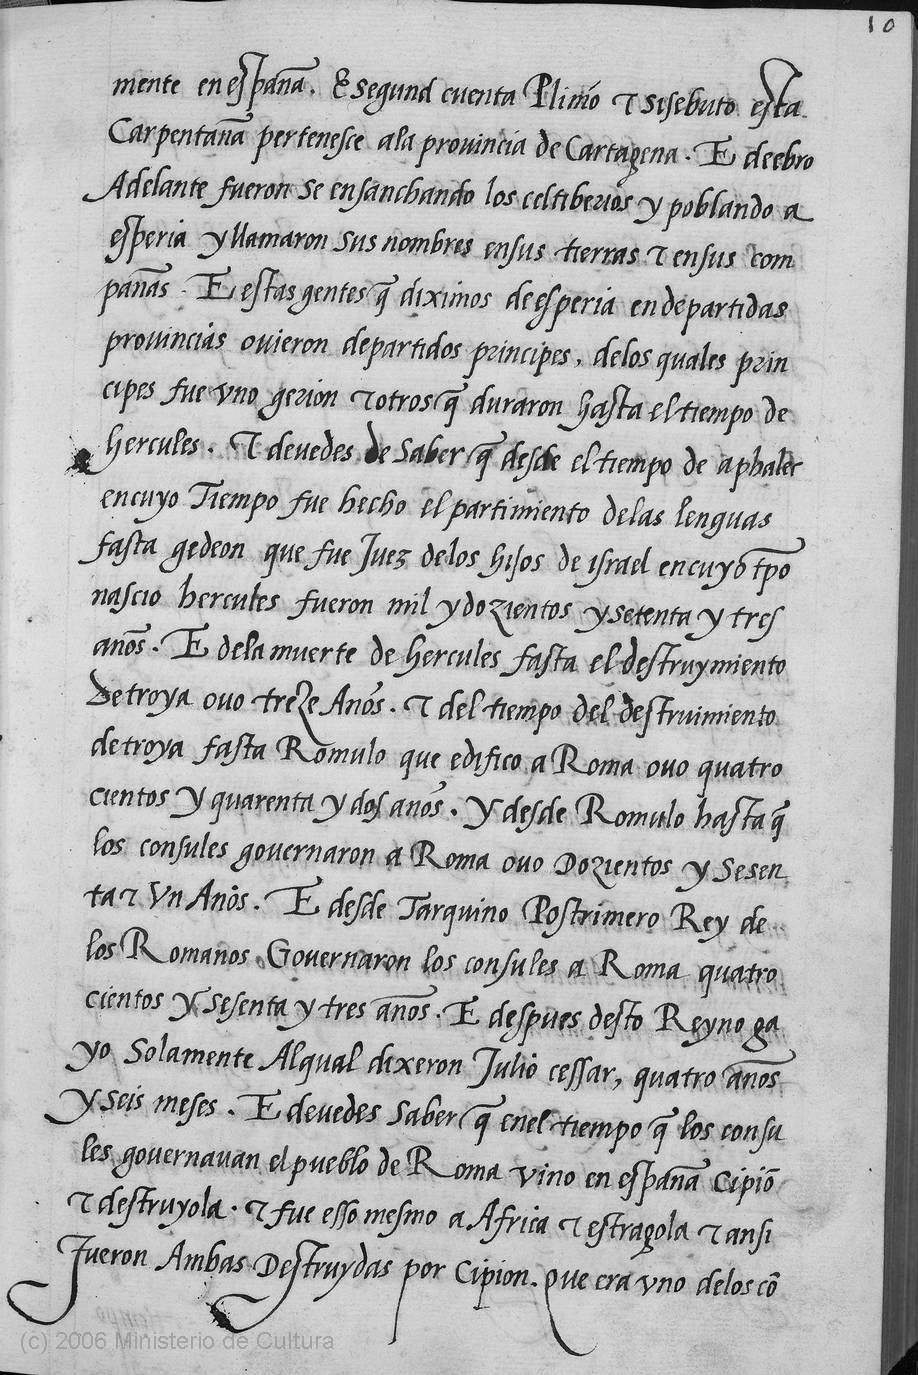 10
mente en españa. E segund cuenta Plinio τ sisebuto esta
Carpentaña pertenesce ala provincia de Cartagena. E de ebro
Adelante fueron se ensanchando los celtiberios y poblando a
esperia y llamaron sus nombres ensus tierras τ ensus com
pañas. E estas gentes q̃ diximos de esperia en departidas
provincias ovieron departidos principes, delos quales prin
cipes fue vno gerion τ otros q̃ duraron hasta el tiempo de
hercules. τ devedes de saber q̃ desde el tiempo de aphalec
encuyo Tiempo fue hecho el partimiento delas lenguas
fasta gedeon que fue Juez delos hijos de israel encuyo tp̃o
nascio hercules fueron mil y dozientos y setenta y tres
años. E dela muerte de hercules fasta el destruymiento
de troya ovo treze Años. τ del tiempo del destruimiento
de troya fasta Romulo que edifico a Roma ovo quatro
cientos y quarenta y dos años. Y desde Romulo hasta q̃
los consules governaron a Roma ovo Dozientos y Sesen
ta τ Vn Años. E desde Tarquino Postrimero Rey de
los Romanos Governaron los consules a Roma quatro
cientos y sesenta y tres años. E despues desto Reyno ga
yo Solamente Alqual dixeron Julio cessar, quatro años
y seis meses. E devedes saber q̃ enel tiempo q̃ los consu
les governavan el pueblo de Roma vino en españa Cipiõ
τ destruyola. τ fue esso mesmo a Africa τ estragola τ ansi
fueron Ambas Destruydas por Cipion. que era vno delos cõ
(c) 2006 Ministerio de Cultura